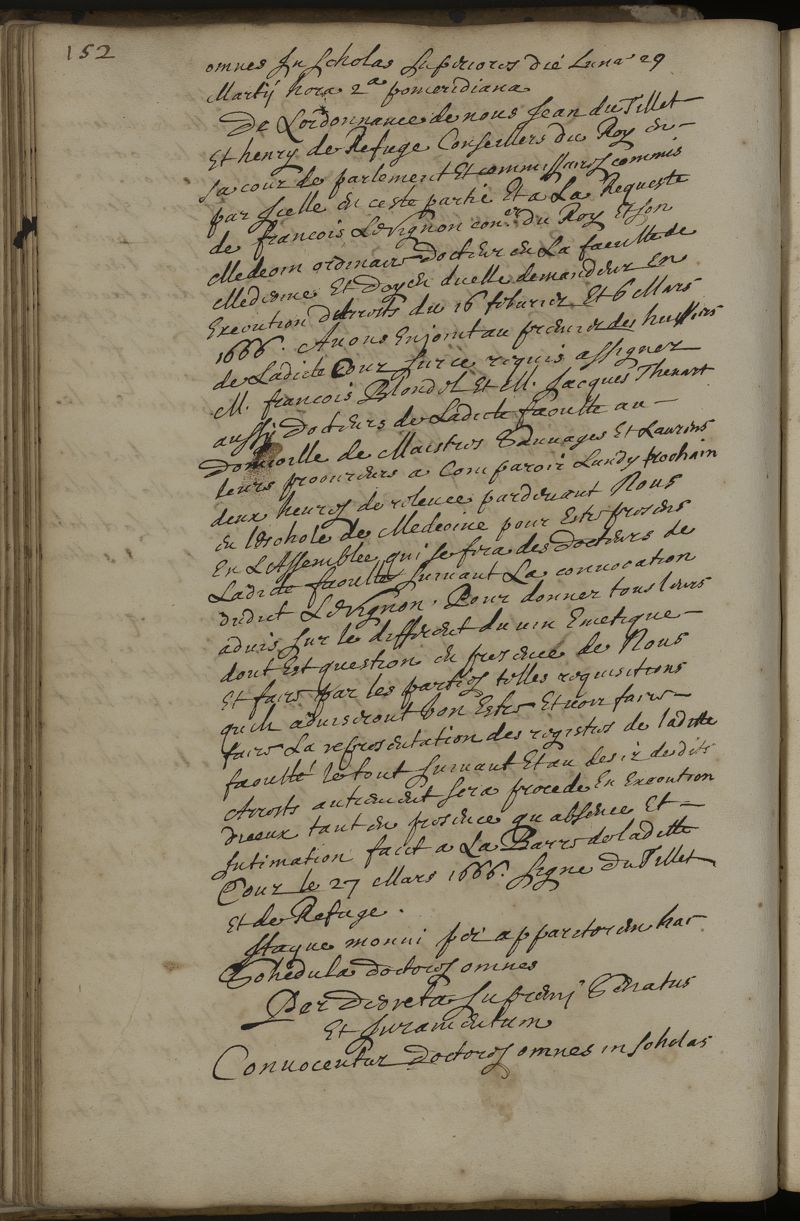 152
omnes In scholas superiores die Lunæ 29
Martij hora 2.a pomeridiana
De Lordonnance de nous Jean du Tillet
Et henry de Refuge Conseillers du Roy en
sa cour de parlement Et commissaires commis
par Icelle en ceste partie Et a La Requeste
de francois LeVignon con.er du Roy Et son
Medecin ordinaire Docteur en La faculté de
Medecine Et Doyen dicelle demandeur En
Execution Darrests du 16 feburier Et 6 Mars
1666. Auons Enjoint au premier des huissiers
de Ladicte Cour sur ce requis assigner
M. francois Blondel Et M. Jacques Thevart
aussy Docteurs de Ladicte faculte au
Domicille de Maistres Sauuages Et Laurens
leurs procureurs a Comparoir Lundy prochain
deux heures de releuee pardeuant Nous
en leschole de Medecine pour Estre presens
En LAssemblee qui se fera des docteurs de
Ladicte faculté suiuant La conuocation
dudict LeVignon. Pour donner tous leurs
aduis sur le different du vin Emetique
dont Est question en presence de Nous
Et faire par les parties telles requisitions
quils aduiseront bon Estre Et voir faire
faire La representation des registres de ladicte
faculté le tout suiuant Et au desir desdits
Arrests autrement sera procedé En Execution
diceux tant en presence qu absence Et
Intimation faict a La Barre deladitte
Cour le 27 Mars 1666. signe Du Tillet
Et de Refuge.
Itaque monui per apparitorem hac
Schedula doctores omnes
Per Decreta supremj Senatus
Et Juramentum
Conuocentur doctores omnes in scholas